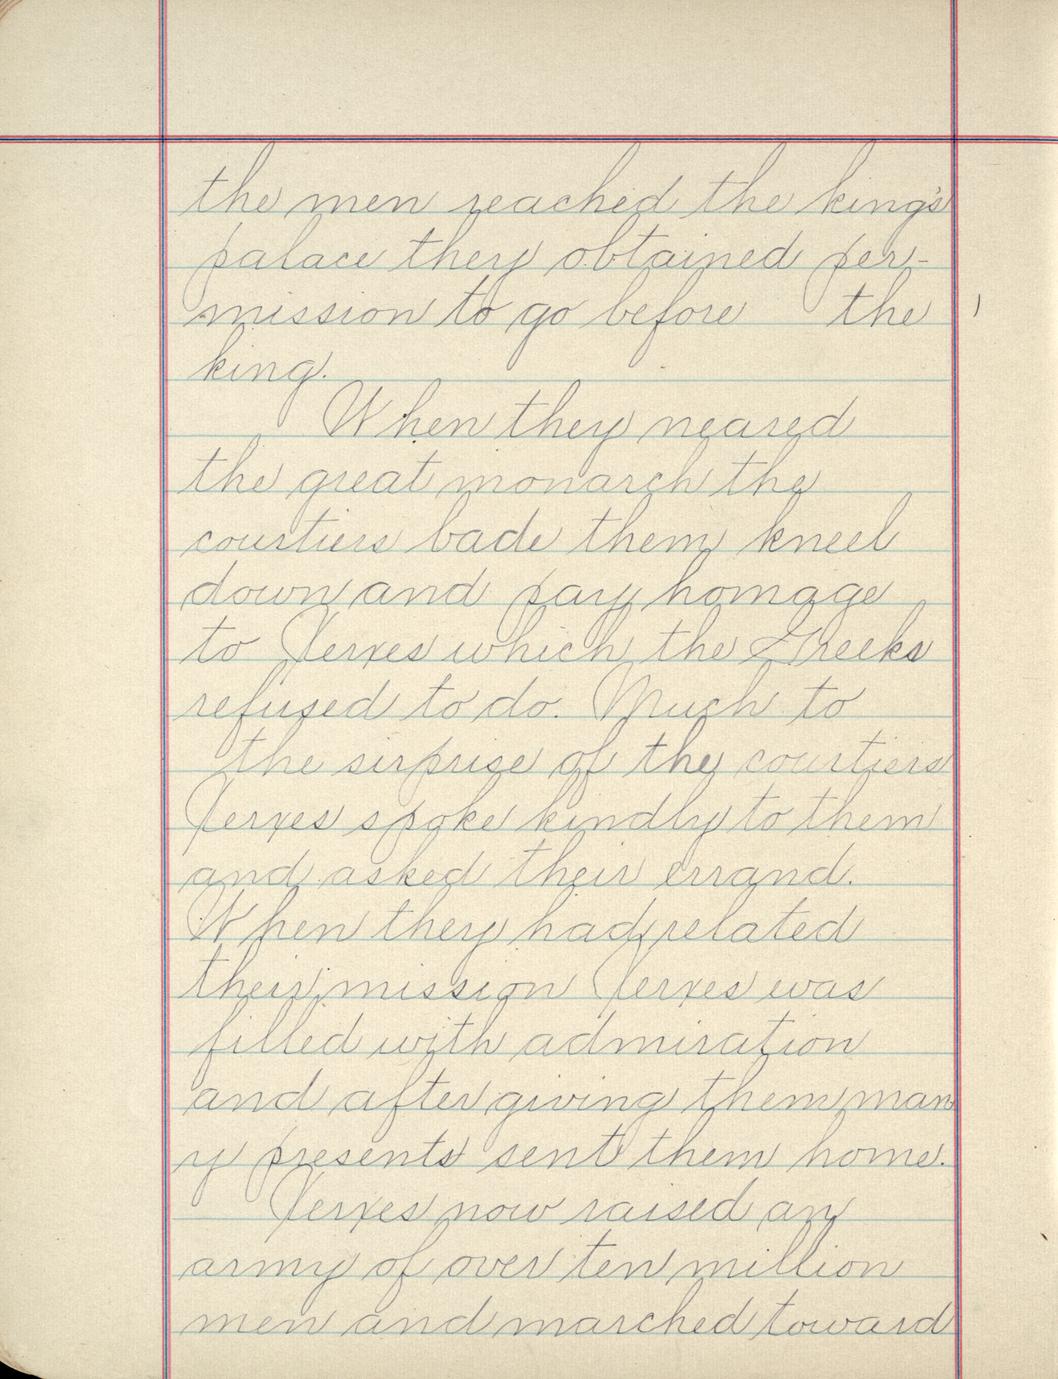 the men reached the king's
palace they obtained per-
mission to go before the
king.
When they neared
the great monarch the
courtiers bade them kneel
down and pay homage
to Xerxes which the Greeks
refused to do. Much to
the sirprise of the courtiers
Xerxes spoke kindly to them
and asked their errand.
When they had related
their mission Xerxes was
filled with admiration
and after giving them man
y presents sent them home.
Xerxes now raised an
army of over ten million
men and marched toward